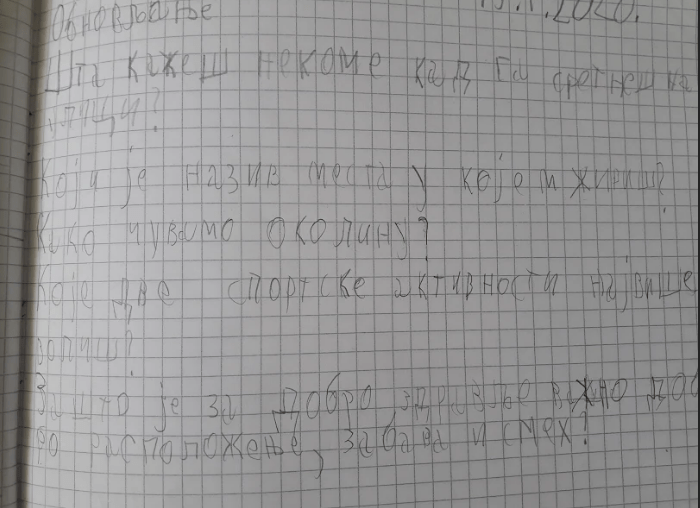 Обновљање
Шта кажеш некоме кад га сретнеш на
улици?
Који је назив места у које м живиш?
Како чувамо околину?
Које две спортске активности највише
волиш?
Зашто је за добро здравље важно доб
ро расположење, забава и смех?